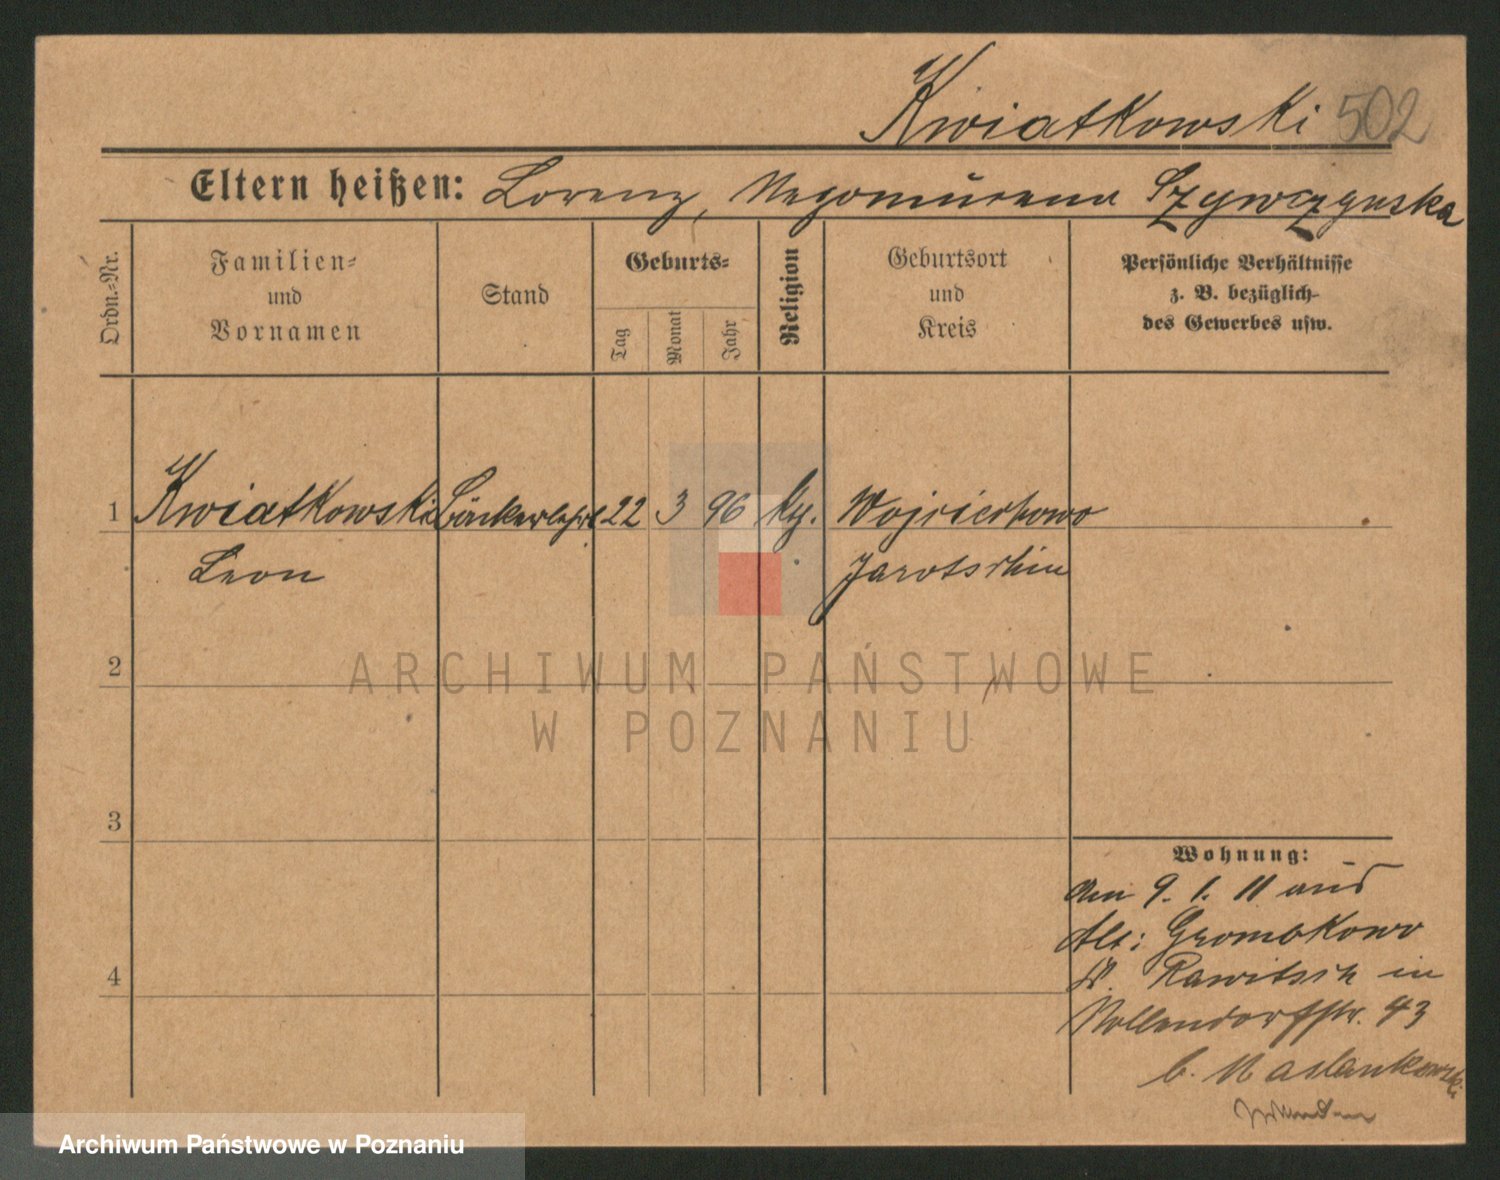 Kwiatkowski 502
Eltern heißen: Lorenz, Szywczynska
Ordn.=Nr.
Familien=
und
Vornamen
Stand
Geburts=
Tag
Monat
Jahr
Religion
Geburtsort
und
Kreis
Persönliche Verhältnisse
z. B. bezüglich
des Gewerbes usw.
1 Kwiatkowski Bäckerlehrl 22 3 96 Wojciechowo
Leon Jarotschin
2
3
4
Wohnung:
Am 9. 1. 11 aus
Alt: Grombkowo
Kr. Rawitsch in
Nollendorfstr. 43
b. Maslankowski
ARCHIWUM PAŃSTWOWE
W POZNANIU
Archiwum Państwowe w Poznaniu